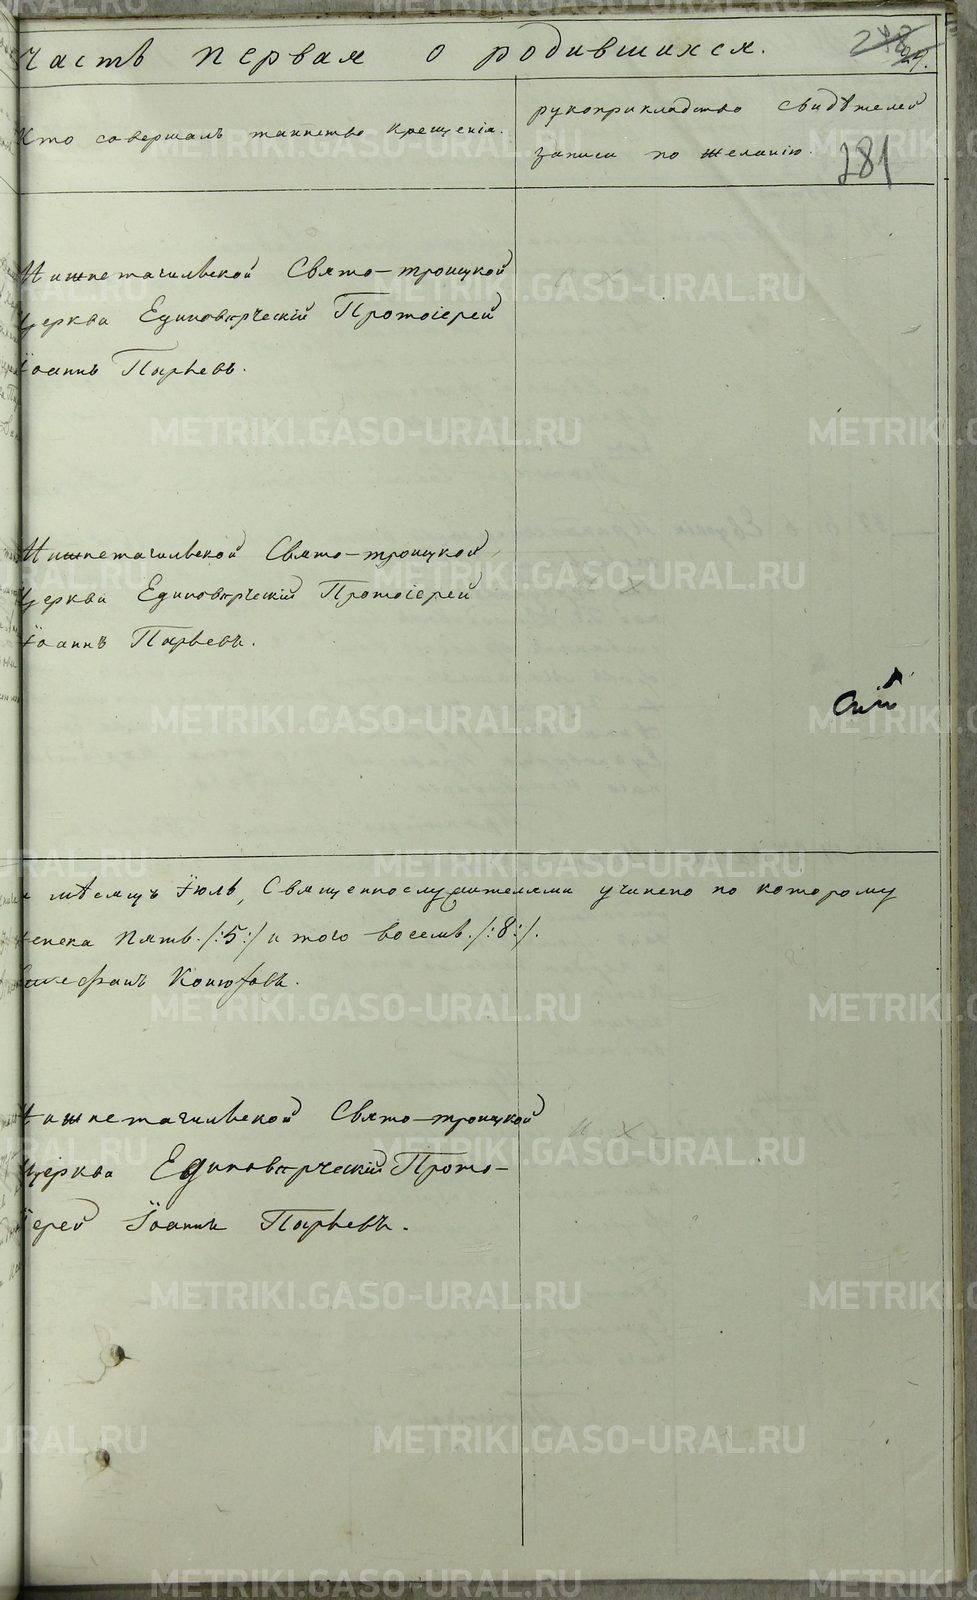 Часть первая о родившихся.
Кто совершалъ таинство крещенія.
рукоприкладство свидѣтелей
записи по желанію.
281
Нижнетагильской Свято-троицкой
Церкви Единовѣрческій Протоіерей
Іоаннъ Пырьевъ.
Нижнетагильской Свято-троицкой
Церкви Единовѣрческій Протоіерей
Іоаннъ Пырьевъ.
мѣсяцъ Іюль, Священнослужителями учинено по которому
женска пять /:5:/ итого восемь /:8:/.
Нижнетагильской Свято-троицкой
Церкви Единовѣрческій Прото-
іерей Іоаннъ Пырьевъ.
METRIKI.GASO-URAL.RU